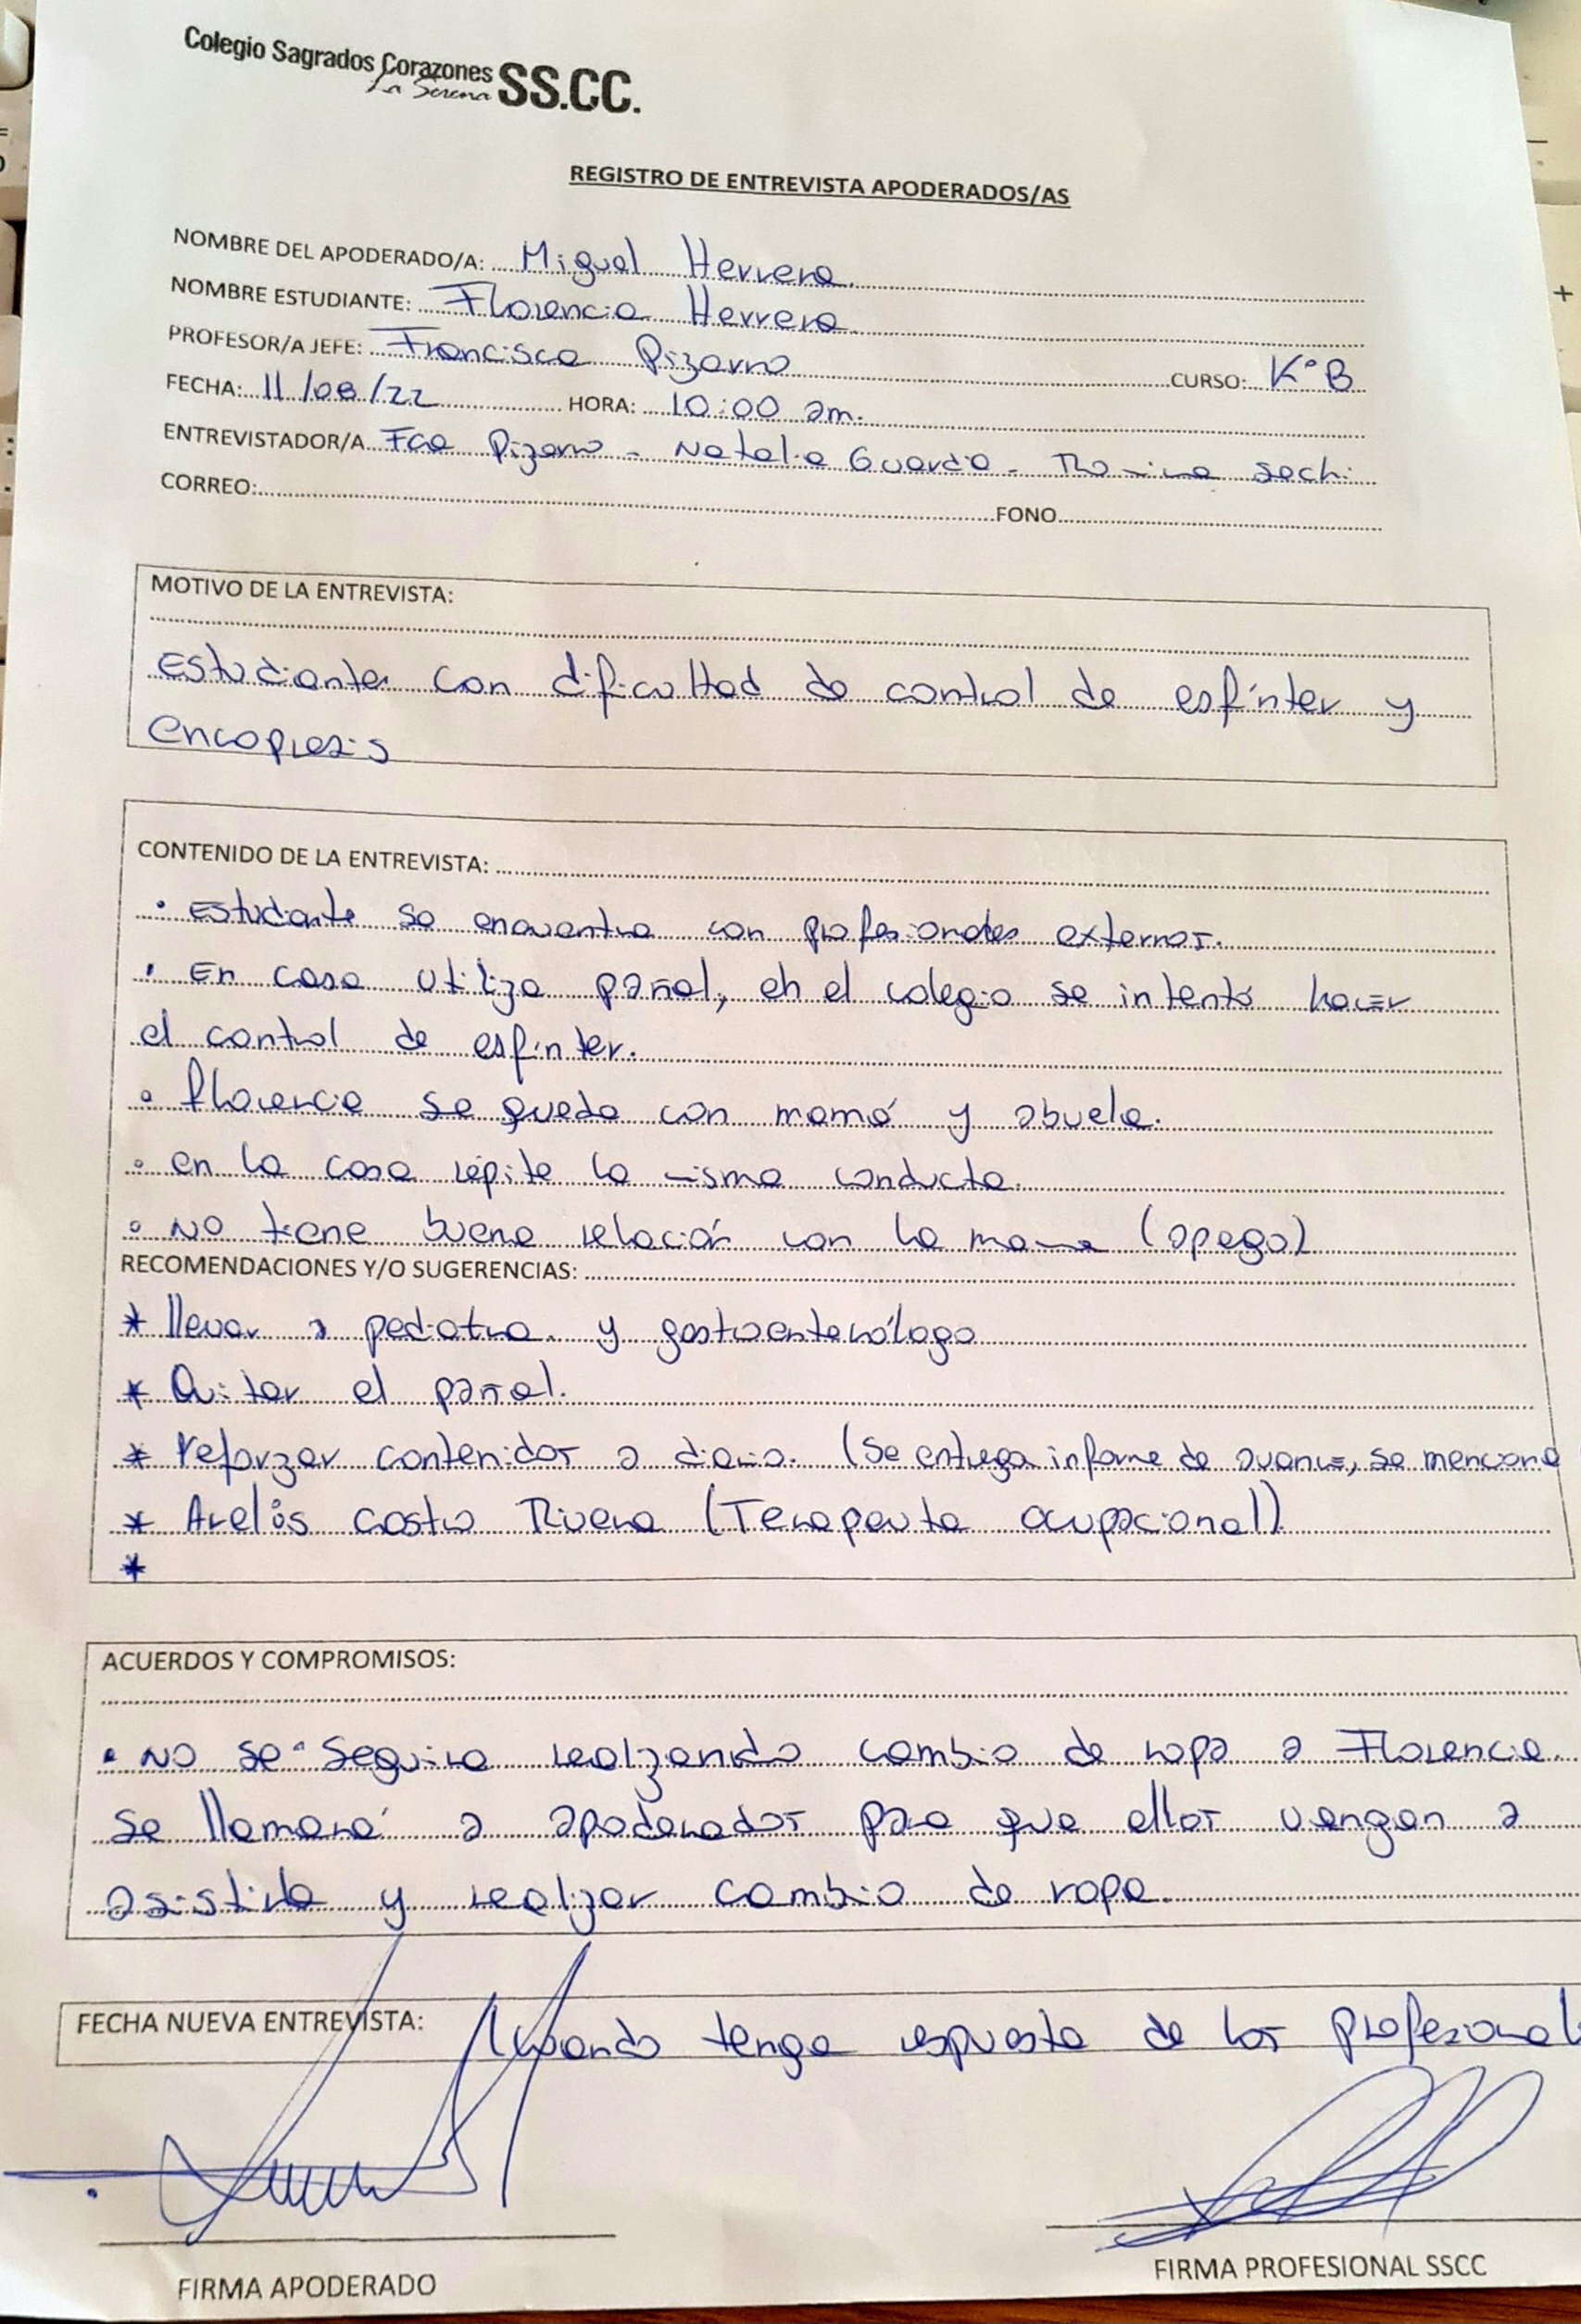 Colegio Sagrados Corazones SS.CC.
La Serena
REGISTRO DE ENTREVISTA APODERADOS/AS
NOMBRE DEL APODERADO/A: Miguel Herrera.
NOMBRE ESTUDIANTE: Florencia Herrera
PROFESOR/A JEFE: Francisca Pizarro CURSO: K°B
FECHA: 11/08/22 HORA: 10:00 am.
ENTREVISTADOR/A Fca Pizarro - Natalia Guardia - Romina Sechi
CORREO: FONO
MOTIVO DE LA ENTREVISTA:
Estudiante con dificultad de control de esfínter y
encopresis
CONTENIDO DE LA ENTREVISTA:
• Estudiante se encuentra con profesionales externos.
• En casa utiliza pañal, en el colegio se intentó hacer
el control de esfinter.
• Florencia se queda con mamá y abuela.
• en la casa repite la misma conducta.
• No tiene buena relación con la mamá (apego)
RECOMENDACIONES Y/O SUGERENCIAS:
* llevar a pediatra. y gastroenterólogo
* Quitar el pañal.
* reforzar contenidos a diario. (Se entrega informe de avance, se menciona
* Arelis Castro Rivera (Terapeuta ocupacional)
*
ACUERDOS Y COMPROMISOS:
• No se seguira realizando cambio de ropa a Florencia.
se llamará a apoderados para que ellos vengan a
asistirla y realizar cambio de ropa.
FECHA NUEVA ENTREVISTA: Cuando tenga respuesta de los profesional
FIRMA APODERADO
FIRMA PROFESIONAL SSCC